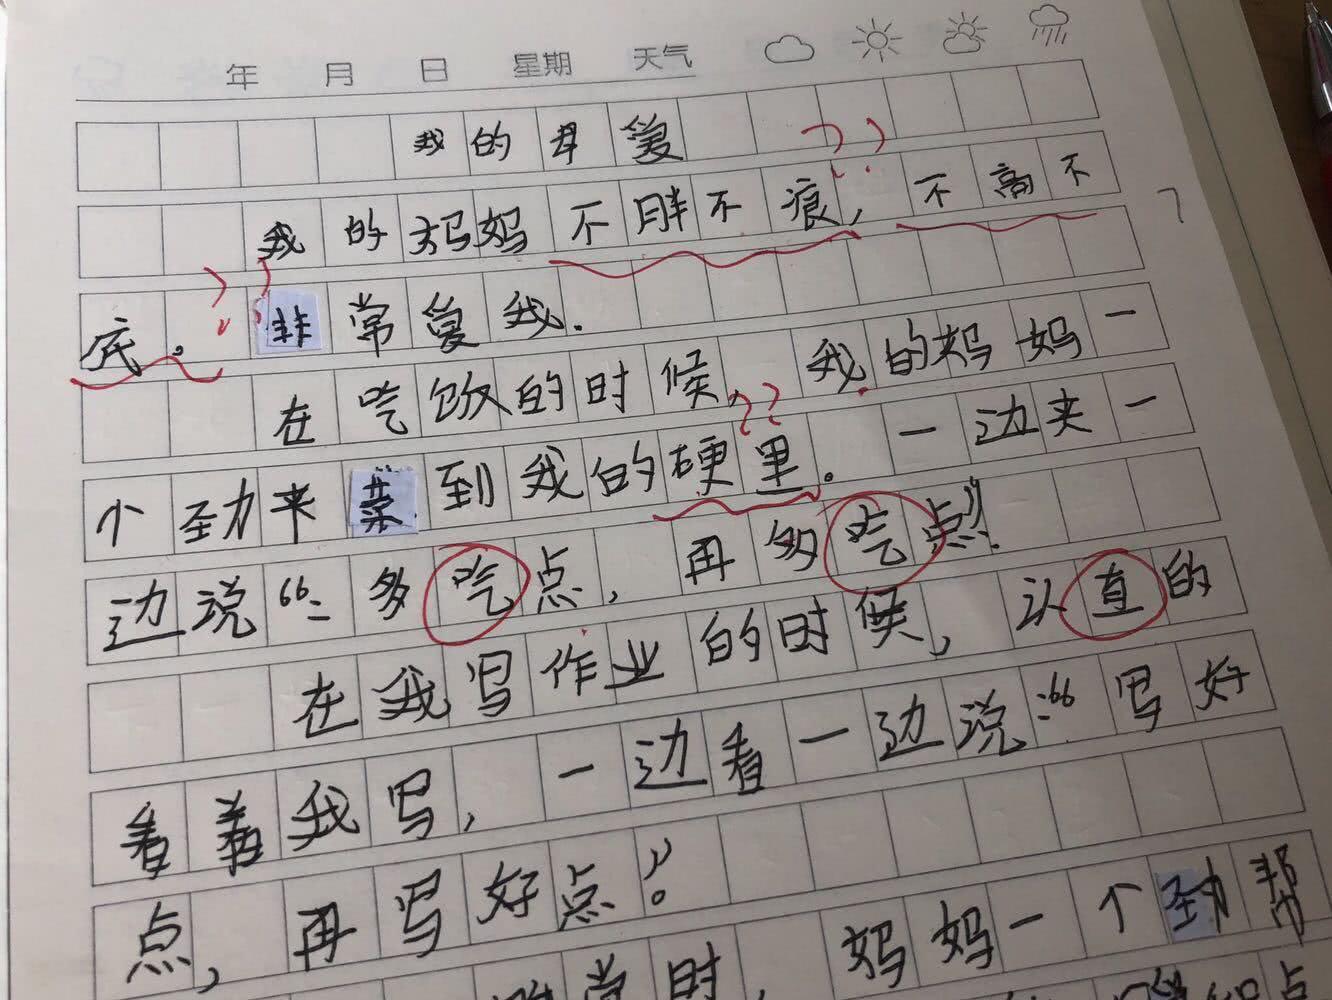 年 月 日 星期 天气
我的母爱
我的妈妈不胖不痕,不高不
底。非常爱我.
在吃饭的时候,我的妈妈一
个劲来菜到我的硬里。一边夹一
边说“:多吃点,再多吃点”.
在我写作业的时候,认真的
看着我写,一边看一边说:“写好
点,再写好点”。
常时,妈妈一个劲帮